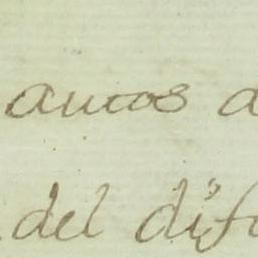 autos d
del dif